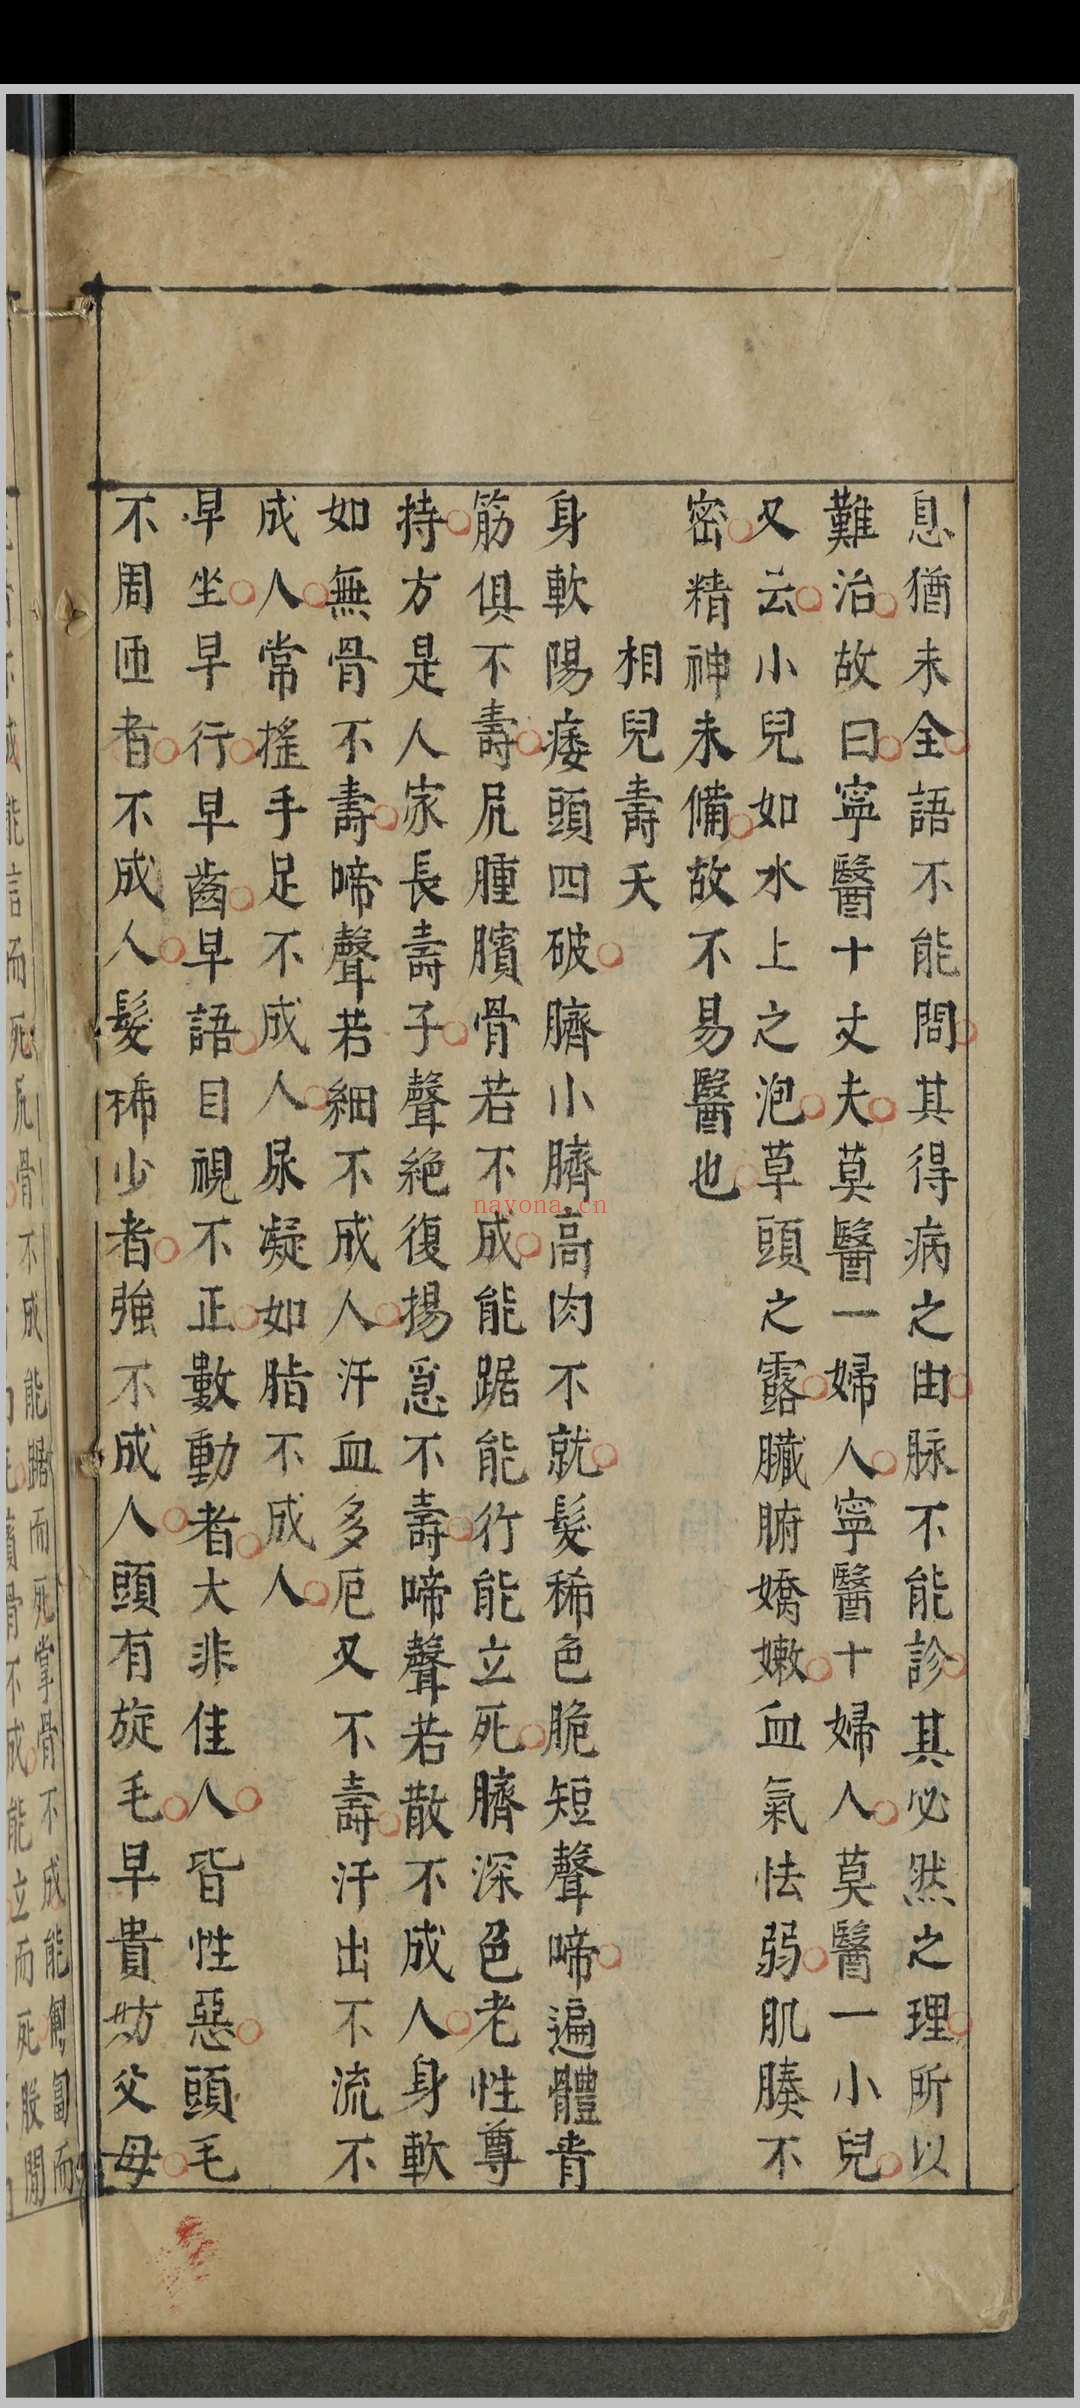 息猶未全語不能問其得病之由脉不能診其必然之理所以
難治故曰寧醫十丈夫莫醫一婦人寧醫十婦人莫醫一小兒
又云小兒如水上之泡草頭之露臟腑嬌嫩血氣怯弱肌腠不
密精神未備故不易醫也
相兒壽夭
身軟陽痿頭四破臍小臍高肉不就髮稀色脆短聲啼遍體青
筋俱不壽尻腫臏骨若不成能踞能行能立死臍深色老性尊
持方是人家長壽子聲絶復揚急不壽啼聲若散不成人身軟
如無骨不壽啼聲若細不成人汗血多厄又不壽汗出不流不
成人常搖手足不成人尿凝如脂不成人
早坐早行早齒早語目視不正數動者大非佳人皆性惡頭毛
不周匝者不成人髮稀少者強不成人頭有旋毛早貴妨父母
nayona.cn